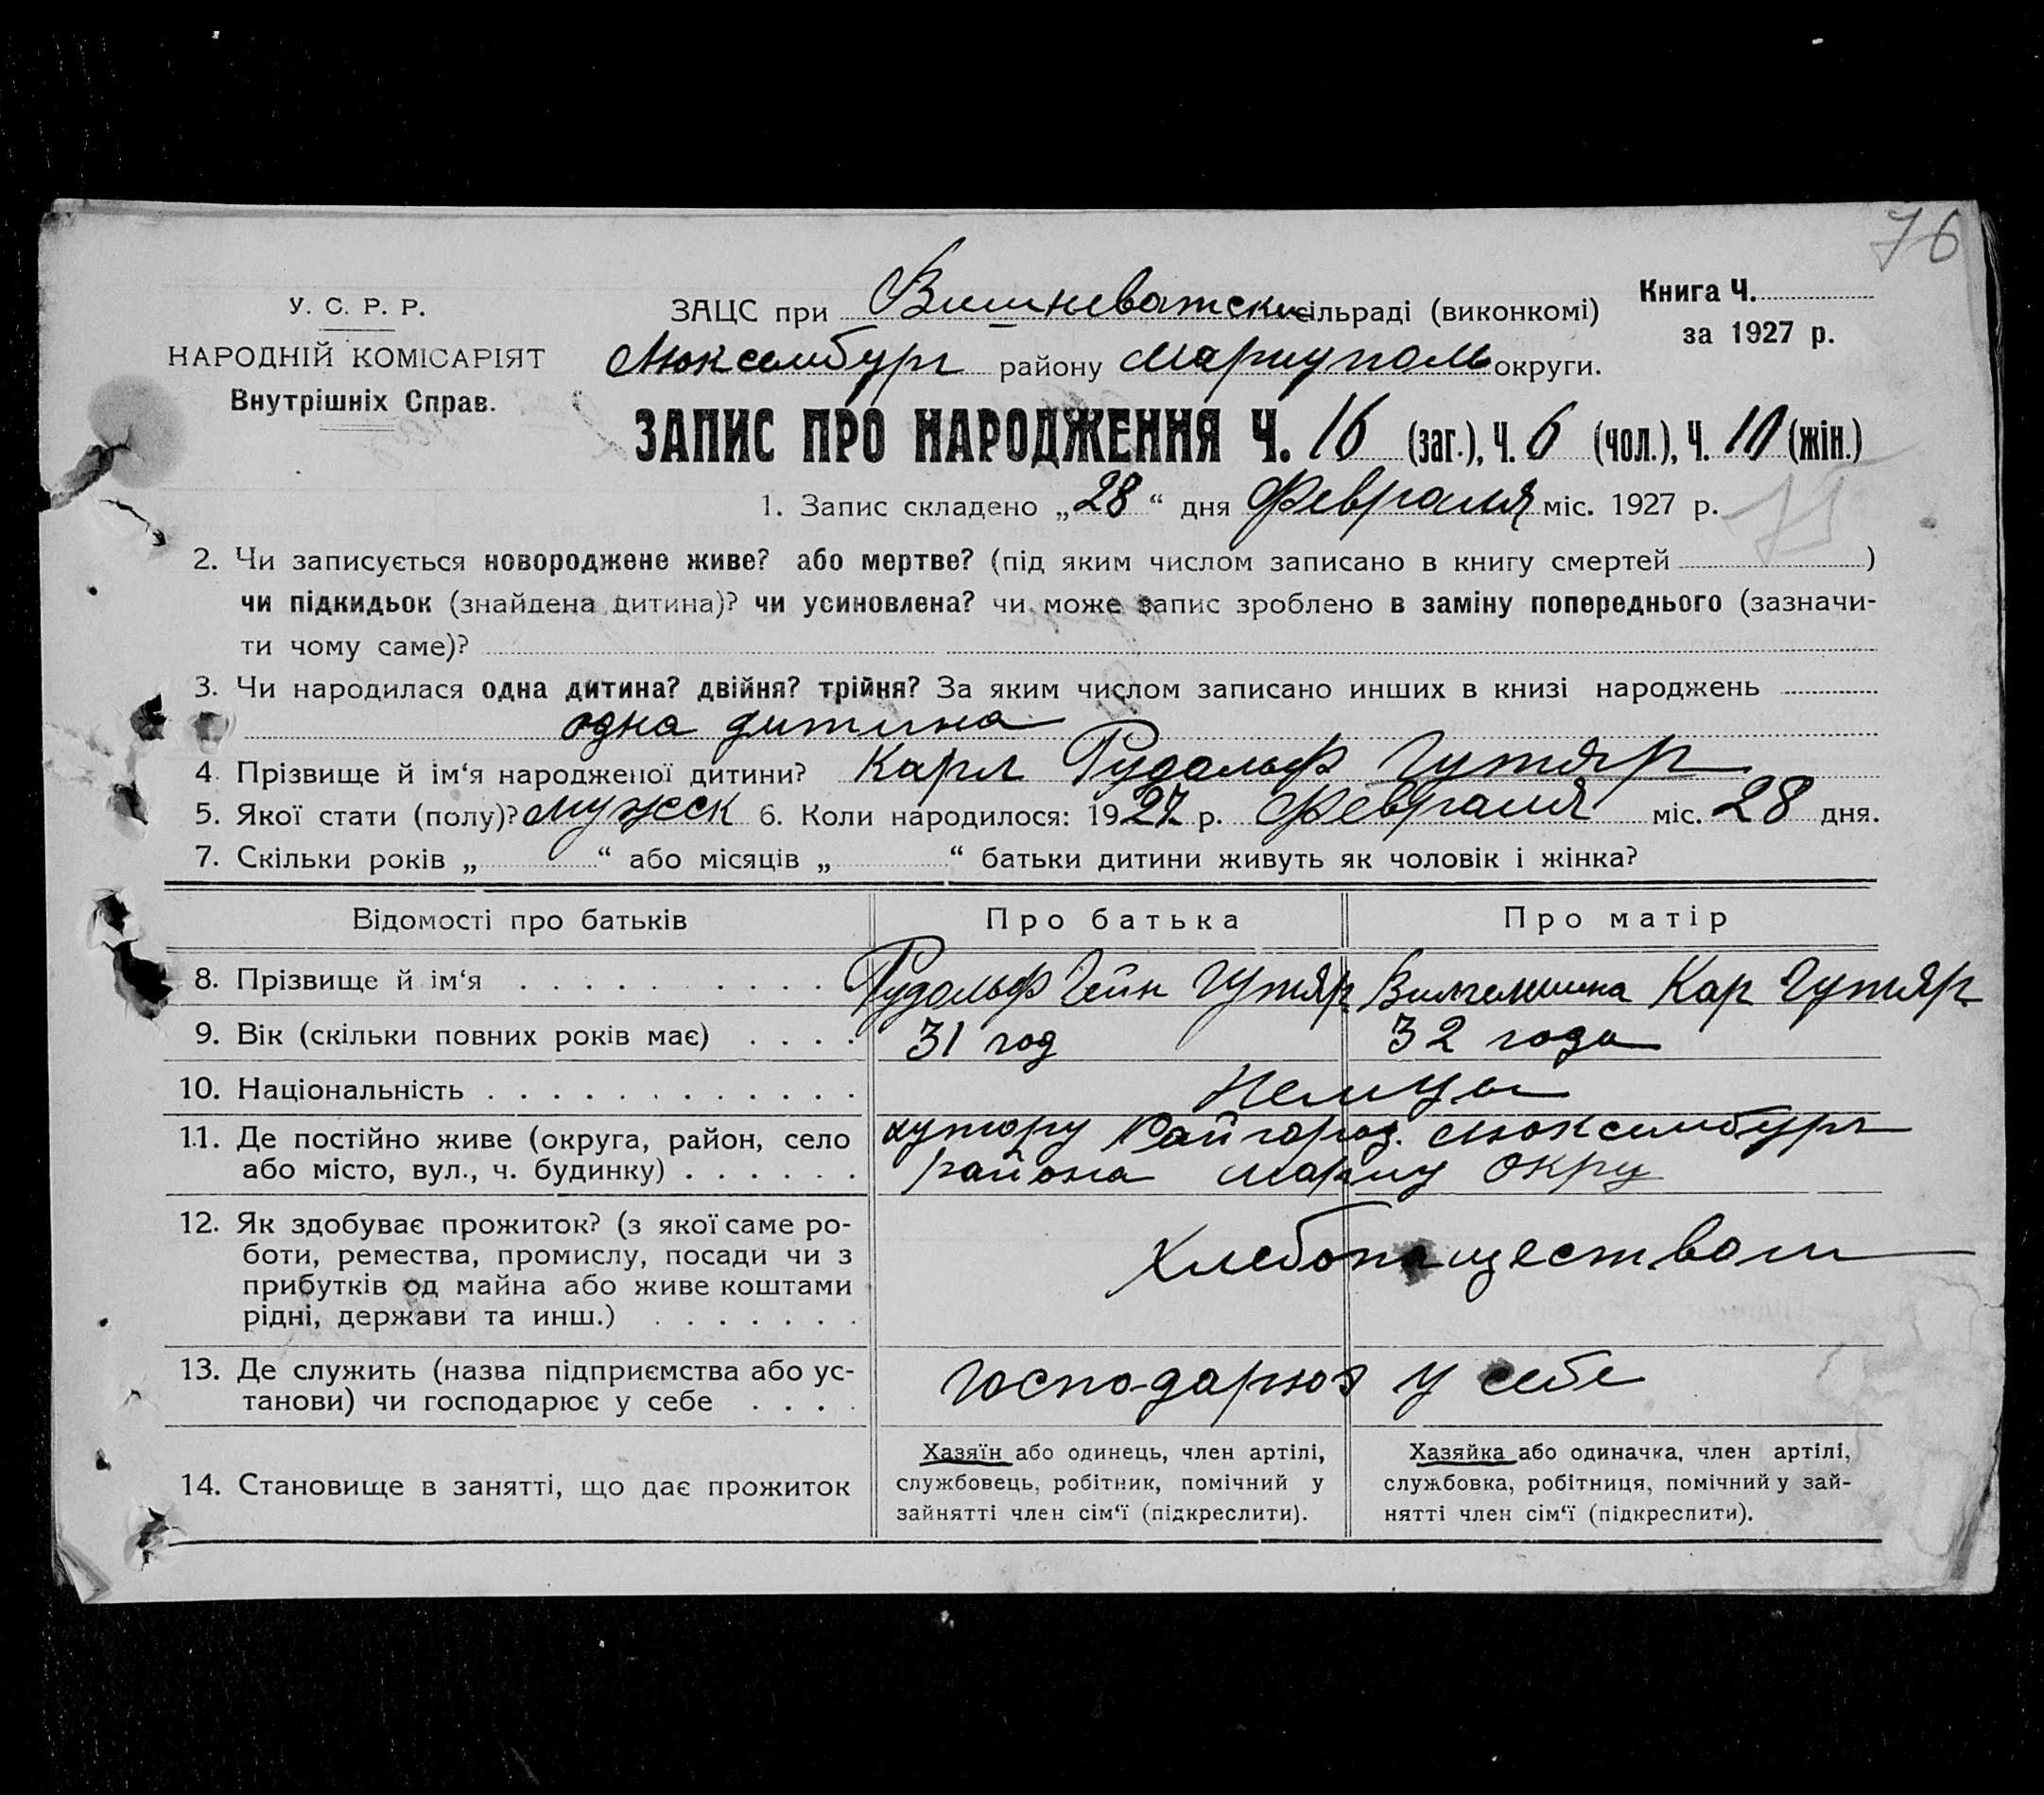 76
У. С. Р. Р.
НАРОДНІЙ КОМІСАРІЯТ
Внутрішніх Справ.
ЗАЦС при Вишневатски сільраді (виконкомі)
Люксембург району Мариуполь округи.
Книга Ч.
за 1927 р.
ЗАПИС ПРО НАРОДЖЕННЯ Ч. 16 (заг.), Ч. 6 (чол.), Ч. 10 (жін.)
1. Запис складено „28“ дня Февраля міс. 1927 р.
75
2. Чи записується новороджене живе? або мертве? (під яким числом записано в книгу смертей )
чи підкидьок (знайдена дитина)? чи усиновлена? чи може запис зроблено в заміну попереднього (зазначи-
ти чому саме)?
3. Чи народилася одна дитина? двійня? трійня? За яким числом записано инших в книзі народжень
одна дитина
4. Прізвище й ім‘я народженої дитини? Карл Рудальф Гутяр
5. Якої стати (полу)? мужеск 6. Коли народилося: 1927 р. Февраля міс. 28 дня.
7. Скільки років „ “ або місяців „ “ батьки дитини живуть як чоловік і жінка?
Відомості про батьків Про батька Про матір
8. Прізвище й ім‘я Рудольф Гейн Гутяр Вилгелмина Кар Гутяр
9. Вік (скільки повних років має) 31 год 32 года
10. Національність Немцы
11. Де постійно живе (округа, район, село
або місто, вул., ч. будинку)
хутору Райгород. Люксембург
района Мариу Окру
12. Як здобуває прожиток? (з якої саме ро-
боти, ремества, промислу, посади чи з
прибутків од майна або живе коштами
рідні, держави та инш.)
Хлебопашеством
13. Де служить (назва підприємства або ус-
танови) чи господарює у себе
господарюют у себе
14. Становище в занятті, що дає прожиток
Хазяїн або одинець, член артілі,
службовець, робітник, помічний у
зайнятті член сім‘ї (підкреслити).
Хазяйка або одиначка, член артілі,
службовка, робітниця, помічний у зай-
нятті член сім‘ї (підкреслити).